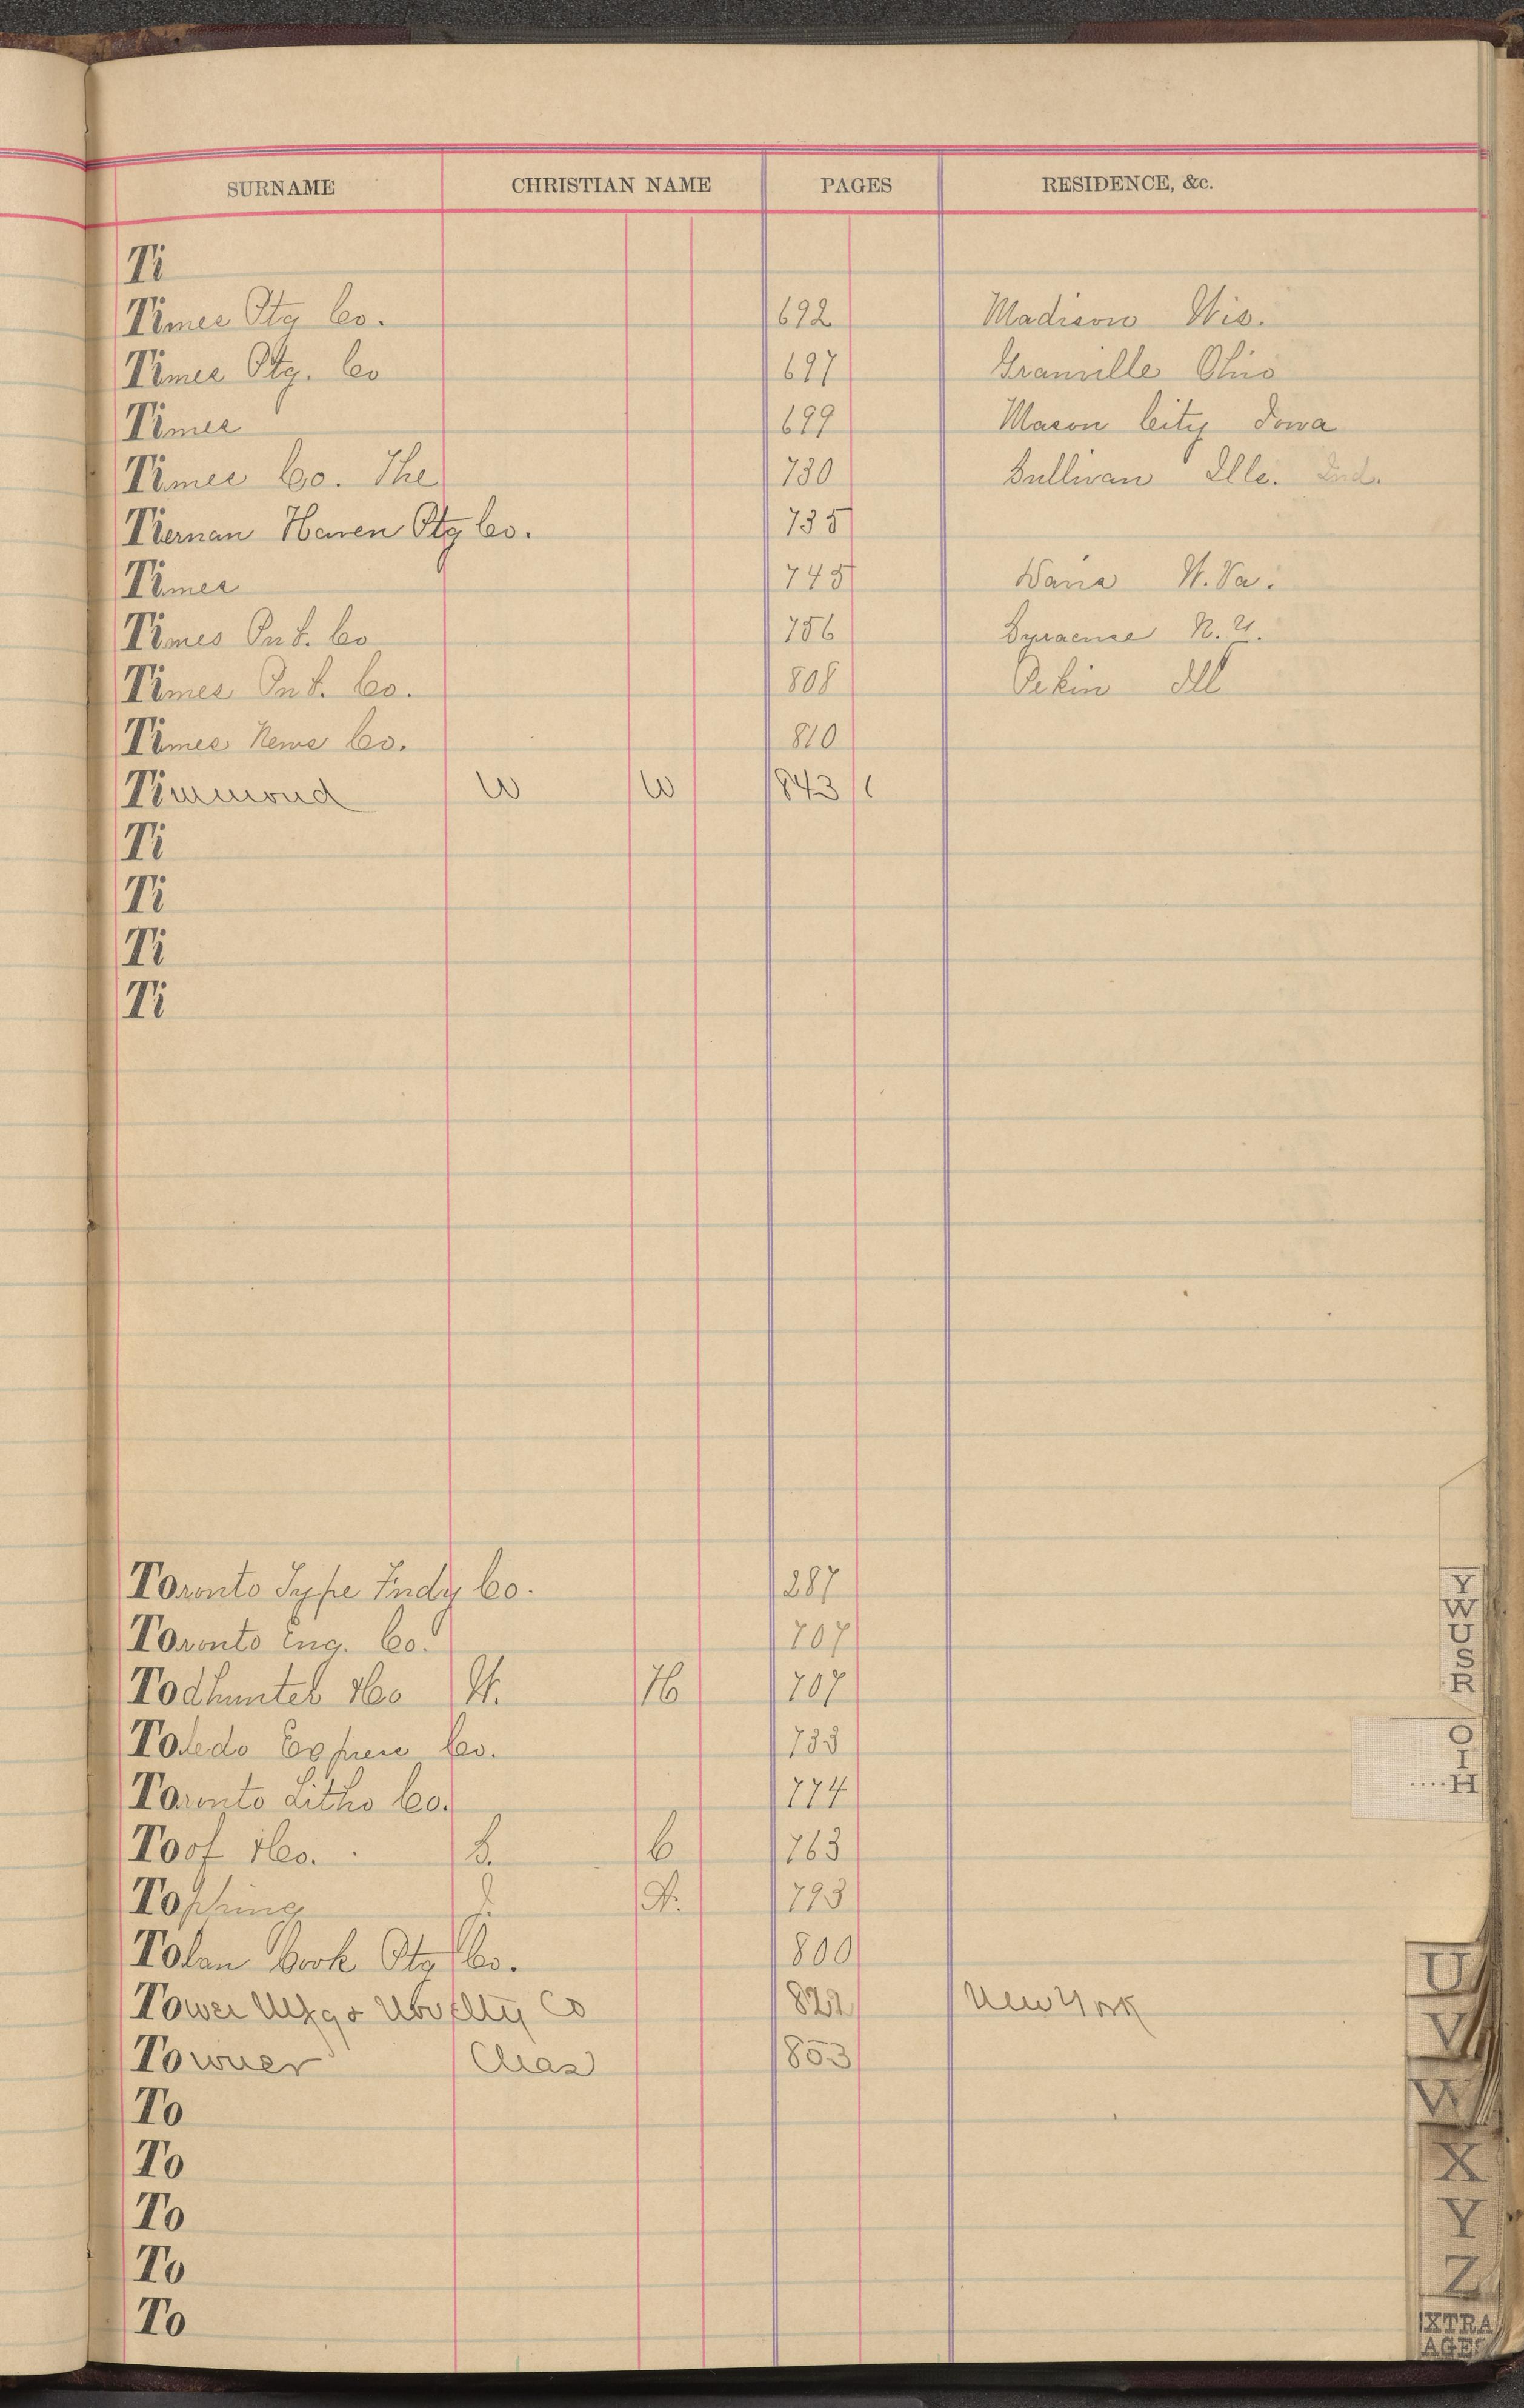 SURNAME CHRISTIAN NAME PAGES RESIDENCE, &c.
Ti
Times Ptg Co. 692 Madison Wis.
Times Ptg. Co 697 Granville Ohio
Times 699 Mason City Iowa
Times Co. The 730 Sullivan Ills. Ind.
Tiernan Haven Ptg Co. 735
Times 745 W. Va.
Times Pub. Co 756 Syracuse N.Y.
Times Pub. Co. 808 Pekin Ill
Times News Co. 810
Timmond W W 843
Ti
Ti
Ti
Ti
Toronto Type Fndy Co. 287
Toronto Eng. Co. 707
Todhunter &Co W. H 707
Toledo Express Co. 733
Toronto Litho Co. 774
Toof &Co. S. C 763
Topping J. A. 793
Tolan Book Ptg Co. 800
Tower Mfg & Novelty Co 822 New York
Towner Chas 853
To
To
To
To
To
Y
W
U
S
R
O
I
H
U
V
W
X
Y
Z